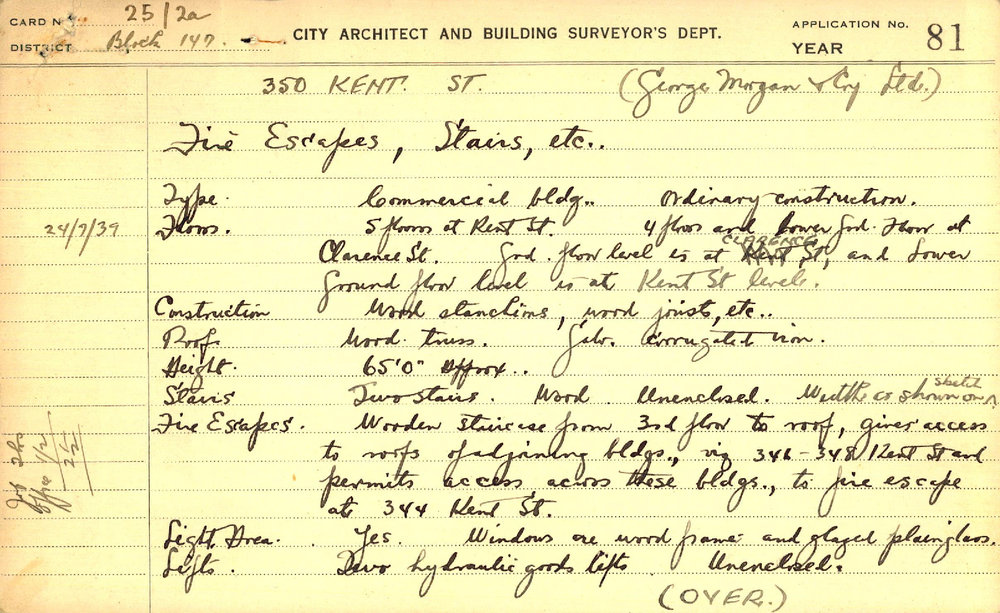 CARD No 25/2a
DISTRICT Block 147.
CITY ARCHITECT AND BUILDING SURVEYOR'S DEPT.
APPLICATION No.
YEAR
81
350 KENT ST. (George Morgan & Coy Ltd.)
Fire Escapes, Stairs, etc..
Type. Commercial bldg.. Ordinary construction.
24/7/39 Floors. 5 floors at Kent St. 4 floors and Lower Grd. Floor at
Clarence St. Grd. floor level is at Kent CLARENCE St, and Lower
Ground floor level is at Kent St level.
Construction Wood stanchions, wood joists, etc..
Roof. Wood truss. Galv. corrugated iron.
Height. 65'0" Approx..
Stairs Two stairs. Wood. Unenclosed. Widths as shown on sketch
Fire Escapes. Wooden staircase from 3rd floor to roof, gives access
to roofs of adjoining bldgs., viz 346-348 Kent St and
permits access across these bldgs., to fire escape
at 344 Kent St.
Light Area. Yes. Windows are wood frame and glazed plain glass.
Lifts. Two hydraulic goods lifts Unenclosed.
(OVER.)
Insp 2 hrs
Office 1/2
2 1/2